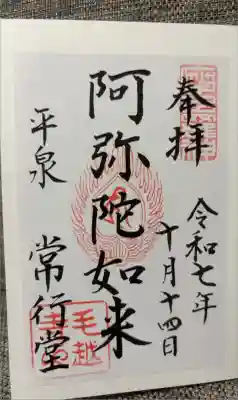 奉拝
令和七年
十月十四日
阿弥陀如来
平泉
常行堂